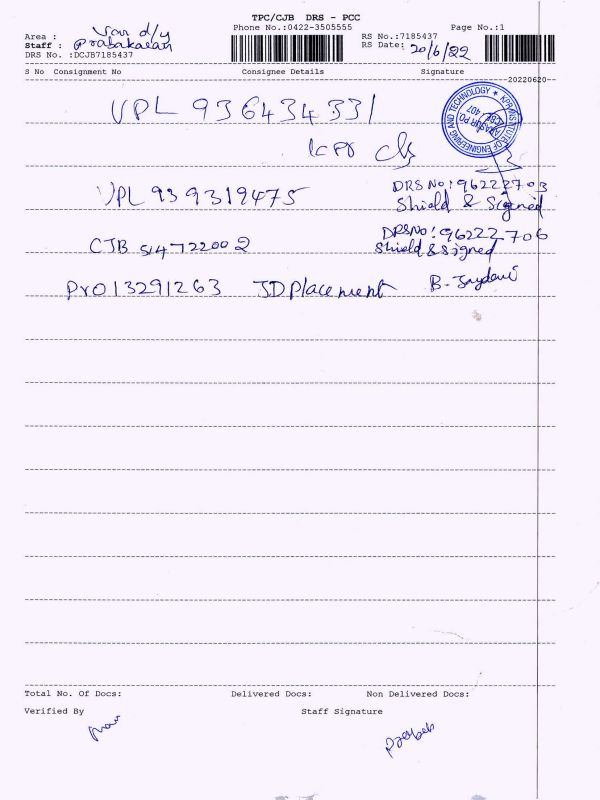 TPC/CJB DRS - PCC
Phone No.:0422-3505555
Page No.:1
Area : Van d/y
Staff : Prabakaran
DRS No. :DCJB7185437
RS No.:7185437
RS Date: 20/6/22
S No Consignment No Consignee Details Signature
--20220620--
VPL 936434331
KPR clg
KPR INSTITUTE OF ENGINEERING AND TECHNOLOGY ★
ARASUR PO
CBE
407
VPL 939319475
DRS No: 96222703
Shield & Signed
CJB 514722002
DRS NO: 96222706
Shield & Signed
PRO13291263 JD Placement
Total No. Of Docs: Delivered Docs: Non Delivered Docs:
Verified By Staff Signature